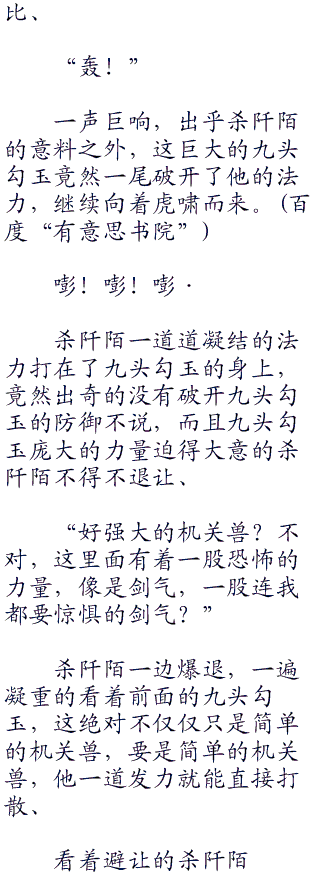 比、
“轰！”
一声巨响，出乎杀阡陌
的意料之外，这巨大的九头
勾玉竟然一尾破开了他的法
力，继续向着虎啸而来。(百
度“有意思书院”)
嘭！嘭！嘭·
杀阡陌一道道凝结的法
力打在了九头勾玉的身上，
竟然出奇的没有破开九头勾
玉的防御不说，而且九头勾
玉庞大的力量迫得大意的杀
阡陌不得不退让、
“好强大的机关兽？不
对，这里面有着一股恐怖的
力量，像是剑气，一股连我
都要惊惧的剑气？”
杀阡陌一边爆退，一遍
凝重的看着前面的九头勾
玉，这绝对不仅仅只是简单
的机关兽，要是简单的机关
兽，他一道发力就能直接打
散、
看着避让的杀阡陌